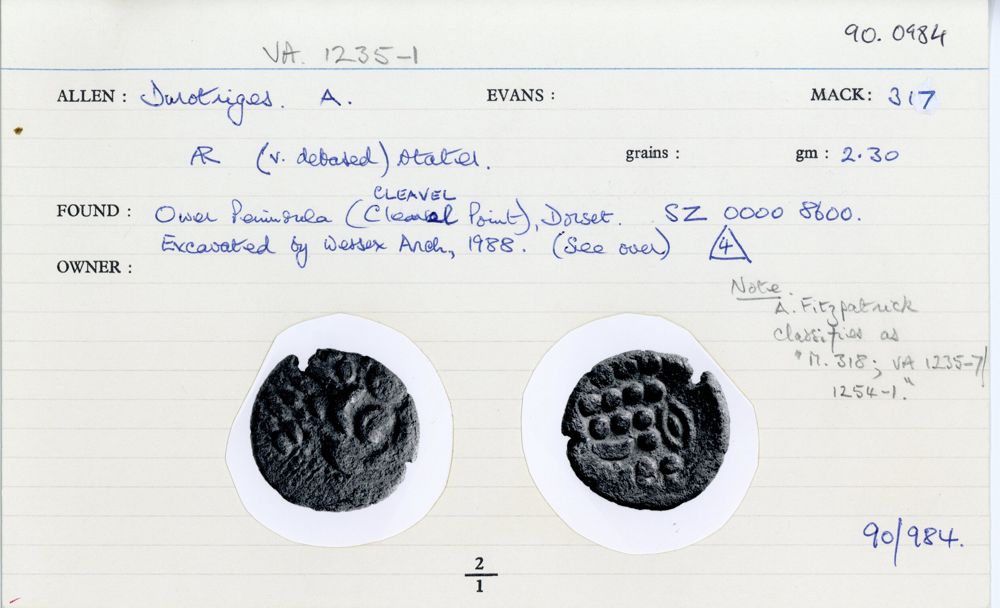 90.0984
VA. 1235-1
ALLEN : Durotriges. A. EVANS : MACK: 317
AR (v. debased) stater. grains : gm : 2.30
CLEAVEL
FOUND : Ower Peninsula (Cleavel Point), Dorset. SZ 0000 8600.
Excavated by Wessex Arch, 1988. (See over) 4
OWNER :
Note.
A. Fitzpatrick
classifies as
"M. 318; VA 1235-7/
1254-1."
90/984.
2
1